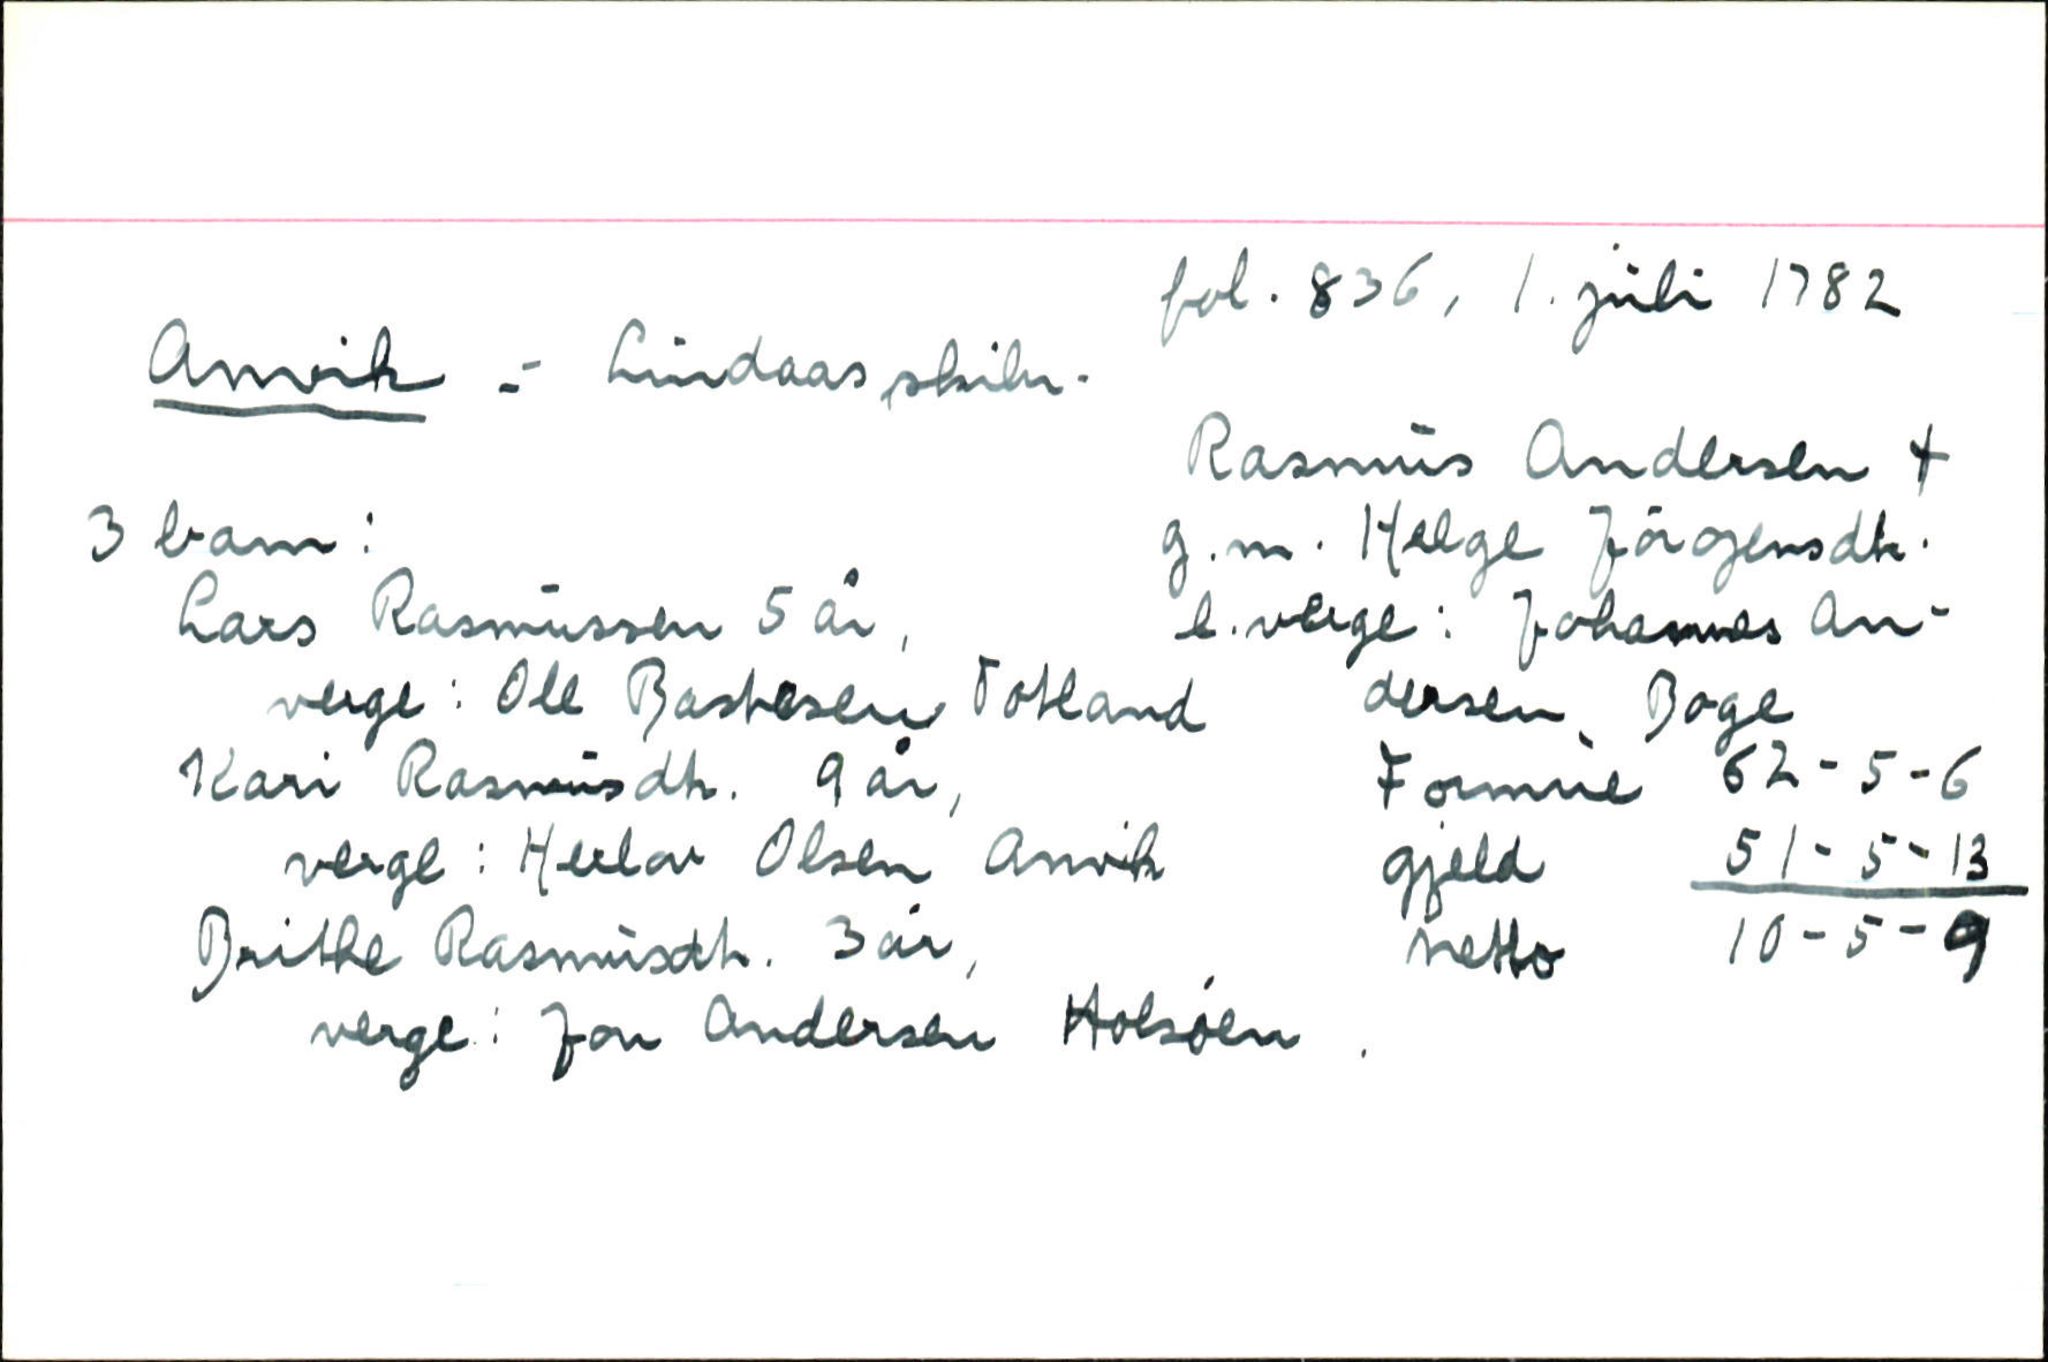 fol. 836, 1. juli 1782
Anvik - Lindaas skibr.
Rasmus Andersen †
g.m. Helge Jörgensdtr.
l.verge: Johannes An-
dersen Boge
Formue 62-5-6
gjeld 51-5-13
netto 10-5-9
3 barn:
Lars Rasmussen 5 år,
verge: Ole Bastesen Totland
Kari Rasmusdtr. 9 år,
verge: Herlov Olsen Anvik
Brithe Rasmusdtr. 3 år,
verge: Jon Andersen Holsöen.